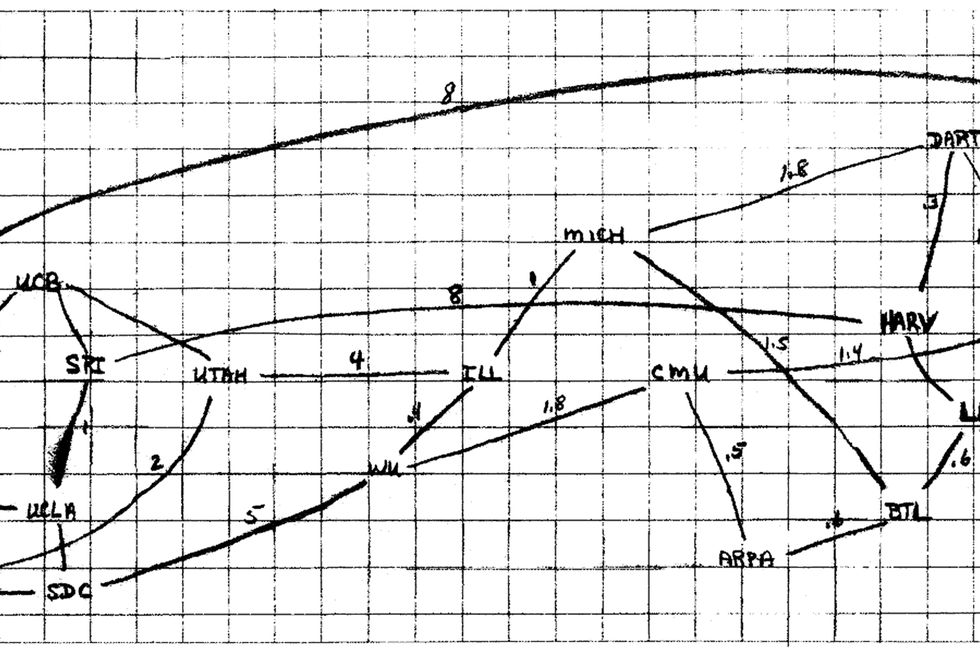 8
DART
1.8
.3
MICH
UCB
1
8
HARV
SRI
UTAH
4
ILL
CMU
1.5
1.4
1
.4
1.8
2
WU
.5
.6
UCLA
5
BTL
.6
ARPA
SDC